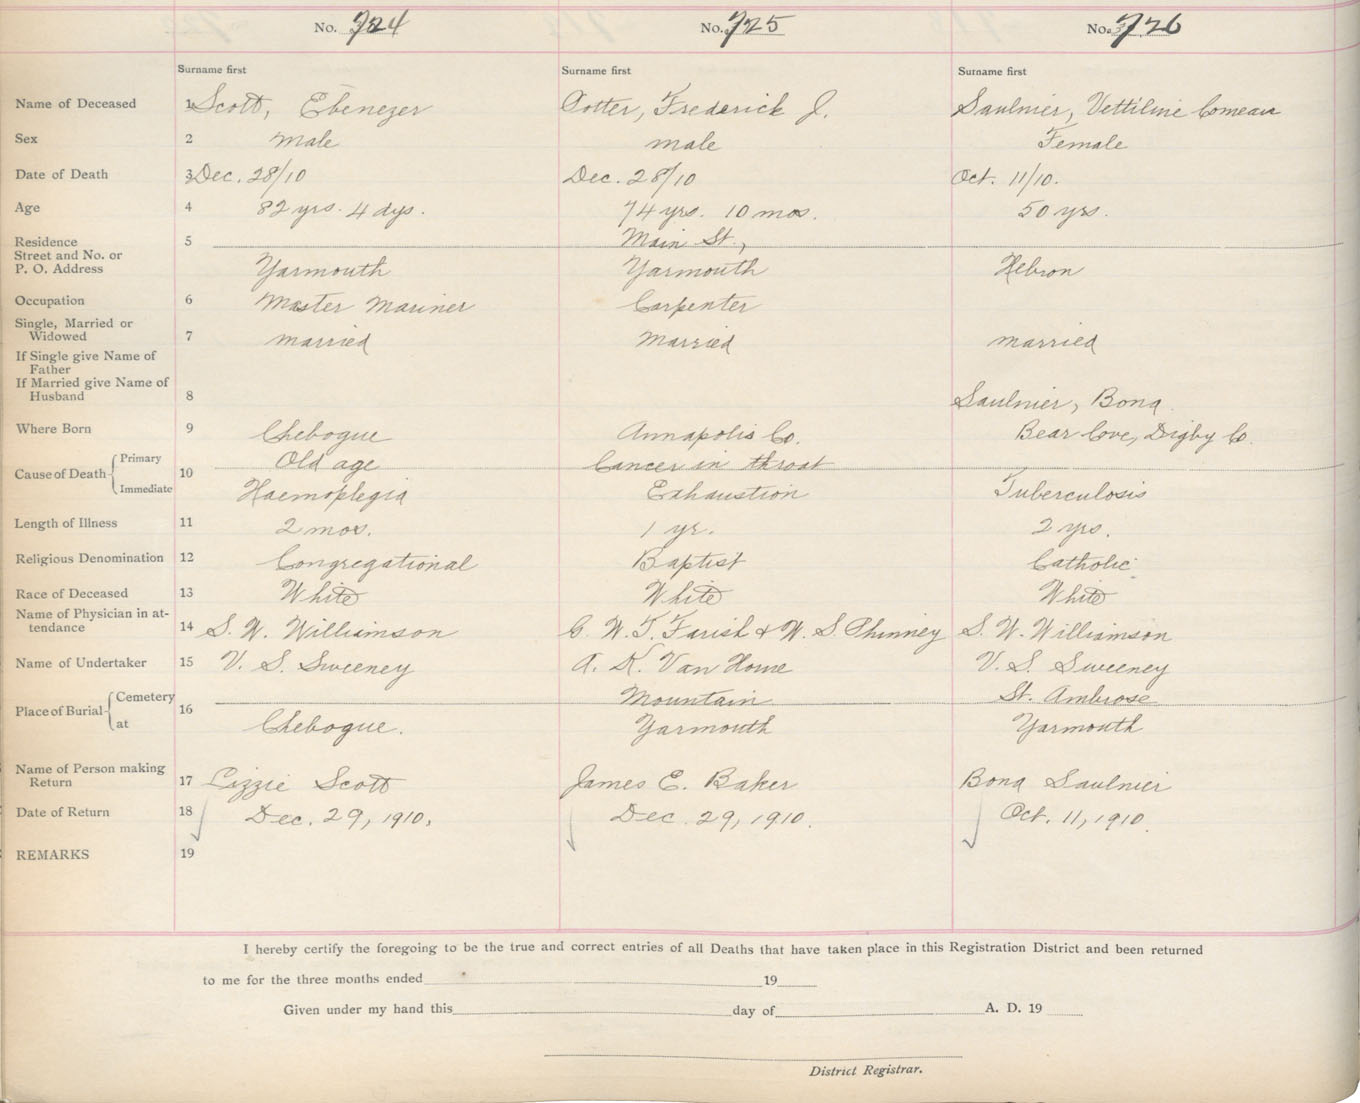 No. 724 No. 725 No. 726
Surname first Surname first Surname first
Name of Deceased 1 Scott, Ebenezer Potter, Frederick J. Saulnier, Vettiline Comeau
Sex 2 male male Female
Date of Death 3 Dec. 28/10 Dec. 28/10 Oct. 11/10.
Age 4 82 yrs. 4 dys. 74 yrs. 10 mos. 50 yrs.
Residence 5 Main St.,
Street and No. or
P. O. Address Yarmouth Yarmouth Hebron
Occupation 6 Master Mariner Carpenter
Single, Married or
Widowed 7 married Married married
If Single give Name of
Father
If Married give Name of
Husband 8 Saulnier, Bona
Where Born 9 Chebogue Annapolis Co. Bear Cove, Digby Co.
Cause of Death Primary 10 Old age Cancer in throat
Immediate Haemoplegia Exhaustion Tuberculosis
Length of Illness 11 2 mos. 1 yr. 2 yrs.
Religious Denomination 12 Congregational Baptist Catholic
Race of Deceased 13 White White White
Name of Physician in at-
tendance 14 S. W. Williamson C. W. T. Farish & W. S. Phinney S. W. Williamson
Name of Undertaker 15 V. S. Sweeney A. K. Van Horne V. S. Sweeney
Place of Burial Cemetery 16 Mountain St. Ambrose
at Chebogue. Yarmouth Yarmouth
Name of Person making
Return 17 Lizzie Scott James E. Baker Bona Saulnier
Date of Return 18 Dec. 29, 1910. Dec. 29, 1910. Oct. 11, 1910.
REMARKS 19
I hereby certify the foregoing to be the true and correct entries of all Deaths that have taken place in this Registration District and been returned
to me for the three months ended 19
Given under my hand this day of A. D. 19
District Registrar.